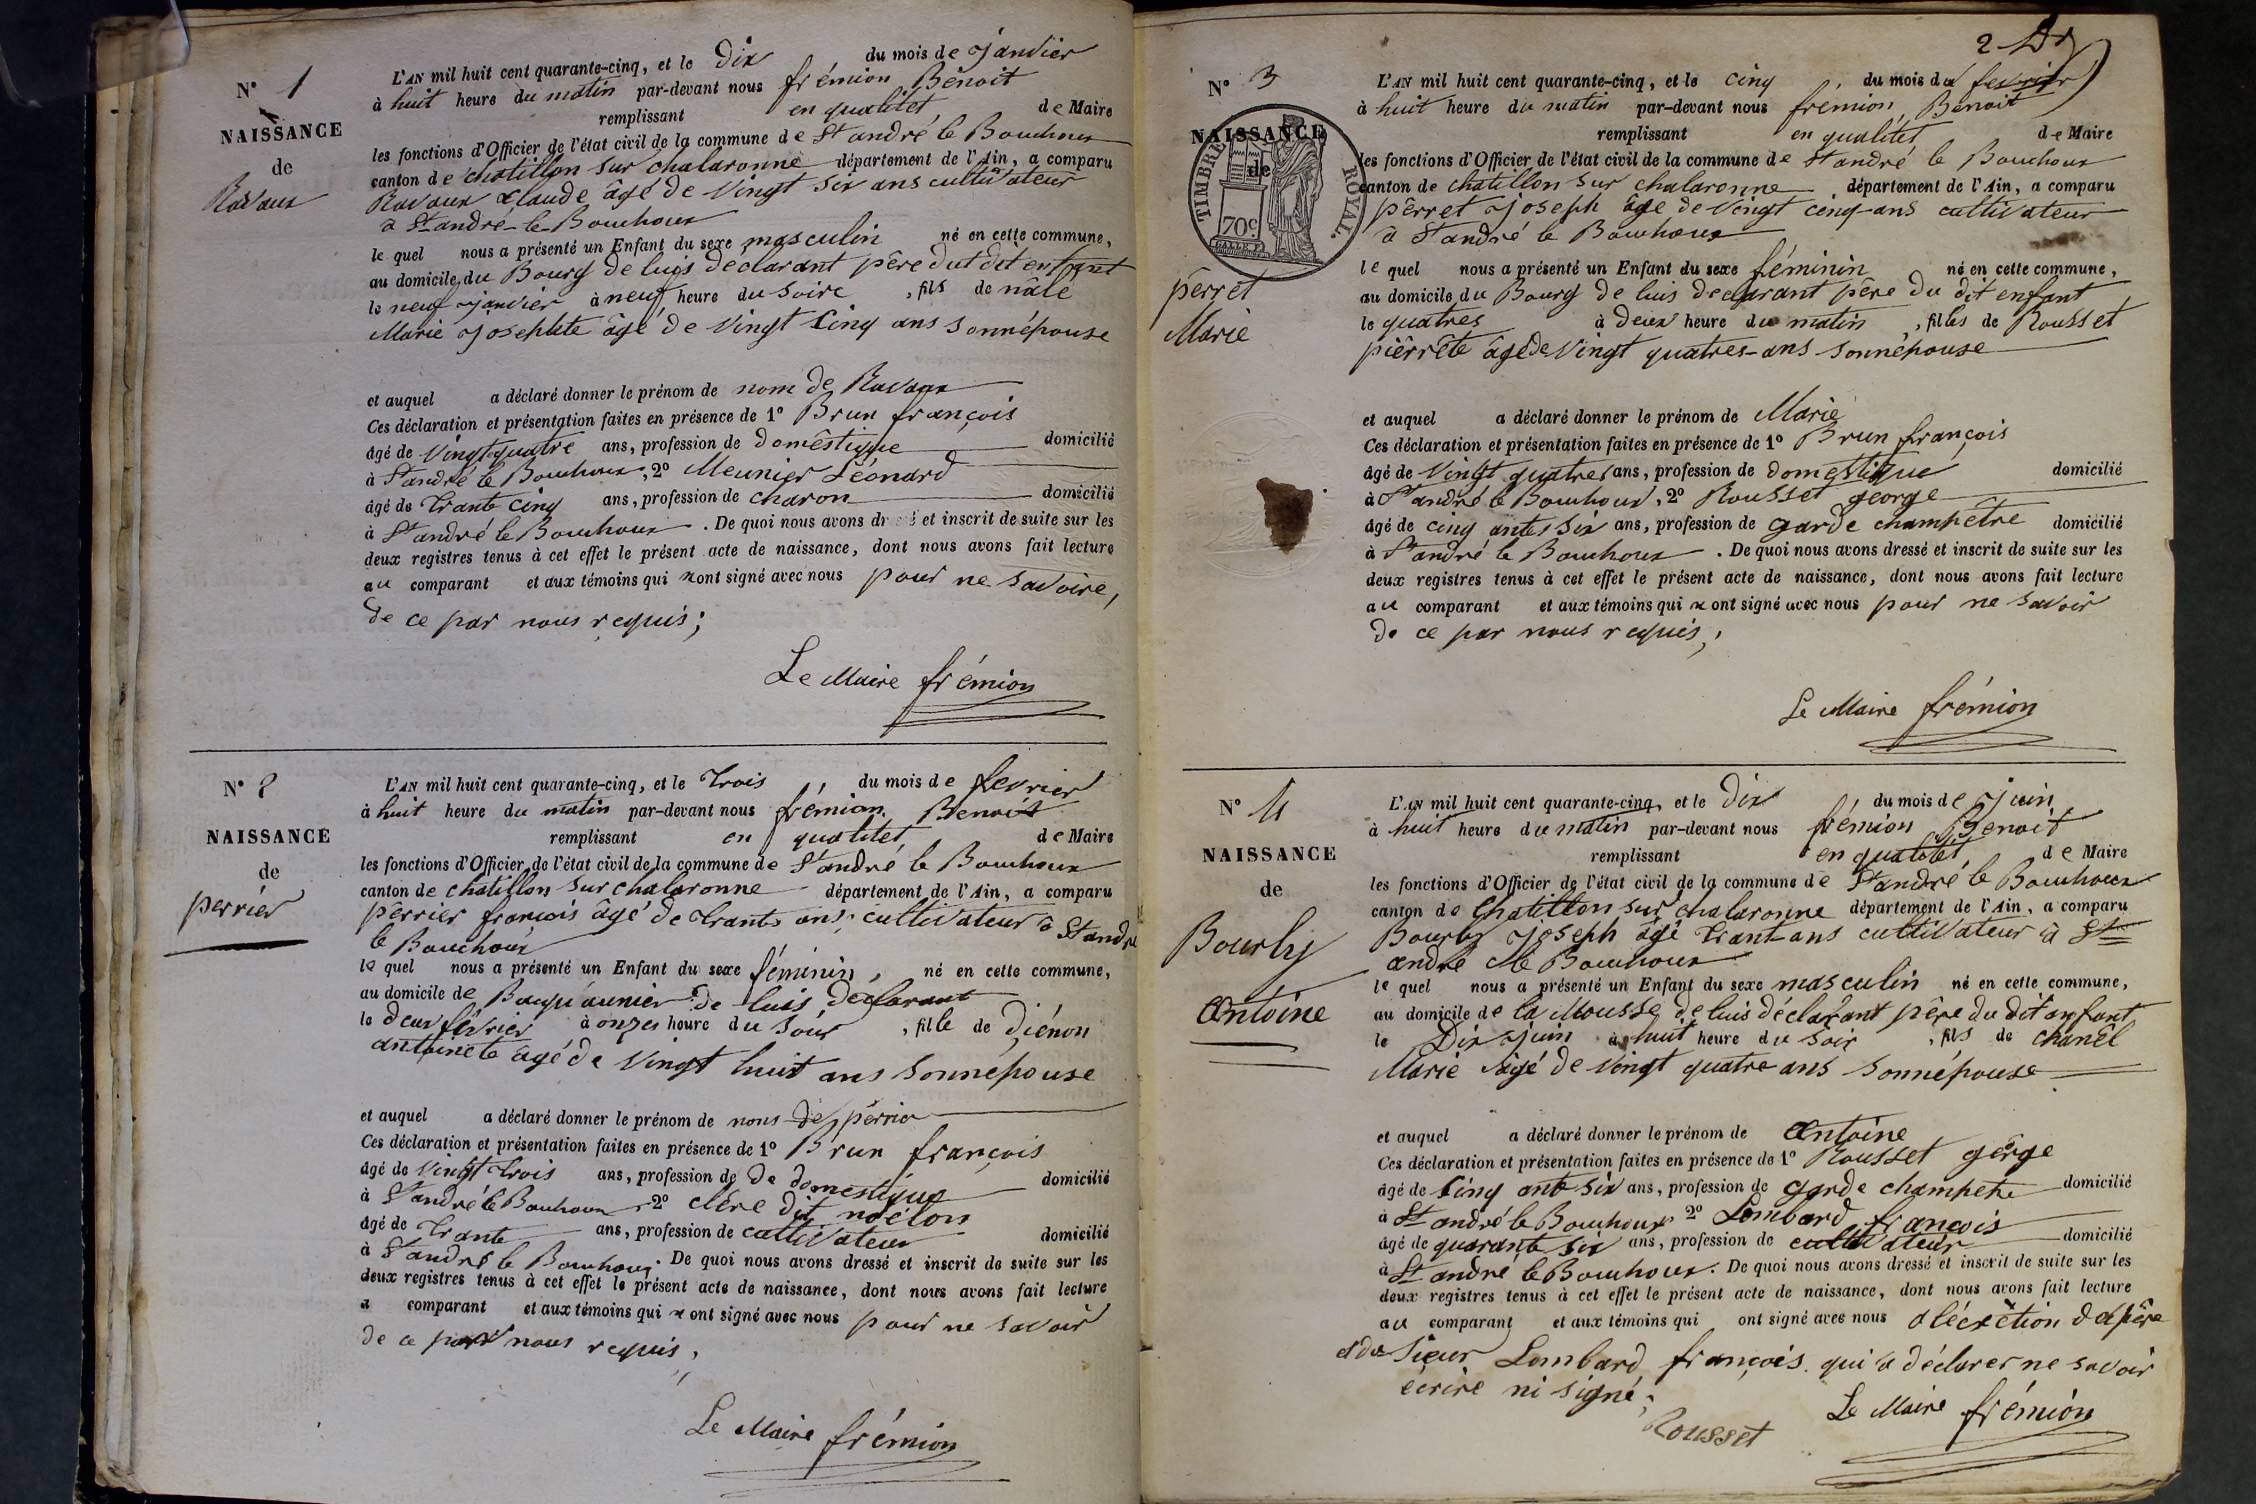 N° 1
NAISSANCE
de
Ravaux
L'AN mil huit cent quarante-cinq, et le Dix du mois de janvier
à huit heure du matin par-devant nous frémion Benoit
remplissant en qualitet de Maire
les fonctions d'Officier de l'état civil de la commune de St andré le Bouchoux
canton de chatillon sur chalaronne département de l'Ain, a comparu
Ravaux claude âgé de Vingt six ans cultivateur
à St andré le Bouchoux
le quel nous a présenté un Enfant du sexe masculin né en cette commune,
au domicile du Bourg de luis déclarant père dut dit enfant
le neuf janvier à neuf heure du soire, fils de nale
Marie josephte âgé de Vingt Cinq ans sonnépouse
et auquel a déclaré donner le prénom de nom de Ravaux
Ces déclaration et présentation faites en présence de 1° Brun françois
âgé de Vingt quatre ans, profession de domestique domicilié
à St andré le Bouchoux, 2° Meunier Léonard
âgé de Trante Cinq ans, profession de charon domicilié
à St andré le Bouchoux. De quoi nous avons dressé et inscrit de suite sur les
deux registres tenus à cet effet le présent acte de naissance, dont nous avons fait lecture
au comparant et aux témoins qui nont signé avec nous pour ne savoire,
de ce par nous requis;
Le Maire frémion
N° 2
NAISSANCE
de
perrier
L'AN mil huit cent quarante-cinq, et le Trois du mois de fevrier
à huit heure du matin par-devant nous frémion Benoit
remplissant en qualitet de Maire
les fonctions d'Officier de l'état civil de la commune de St andré le Bouchoux
canton de chatillon sur chalaronne département de l'Ain, a comparu
perrier francois âgé de trante ans, cultivateur à St andré
le Bouchoux
le quel nous a présenté un Enfant du sexe féminin, né en cette commune,
au domicile de de luis déclarant
le deux février à onzes heure du soir, fille de Diénon
antoinete âgé de Vingt huit ans sonnépouse
et auquel a déclaré donner le prénom de nons de perrier
Ces déclaration et présentation faites en présence de 1° Brun françois
âgé de Vingt trois ans, profession de de domestique domicilié
à St andré le Bouchoux 2° clére dit noélon
âgé de trante ans, profession de cultivateur domicilié
à St andré le Bouchoux. De quoi nous avons dressé et inscrit de suite sur les
deux registres tenus à cet effet le présent acte de naissance, dont nous avons fait lecture
a comparant et aux témoins qui n ont signé avec nous pour ne savoir
de ce par nous requis;
Le Maire frémion
2
N° 3
NAISSANCE
de
TIMBRE ROYAL.
70c.
perret
Marie
L'AN mil huit cent quarante-cinq, et le cinq du mois de fevrier
à huit heure du matin par-devant nous frémion, Benoit
remplissant en qualitet de Maire
les fonctions d'Officier de l'état civil de la commune de St andré le Bouchoux
canton de chatillon sur chalaronne, département de l'Ain, a comparu
perret joseph âge de Vingt cinq ans cultivateur
à St andré le Bouchoux
le quel nous a présenté un Enfant du sexe féminin né en cette commune,
au domicile du Bourg de luis declarant père du dit enfant
le quatres à deux heure du matin, filles de Rousset
pierrête âgé de Vingt quatres ans sonnépouse
et auquel a déclaré donner le prénom de Marie
Ces déclaration et présentation faites en présence de 1° Brun françois
âgé de Vingt quatres ans, profession de domestique domicilié
à St andré le Bouchoux, 2° Rousset george
âgé de cinq antes six ans, profession de garde champêtre domicilié
à St andré le Bouchoux. De quoi nous avons dressé et inscrit de suite sur les
deux registres tenus à cet effet le présent acte de naissance, dont nous avons fait lecture
au comparant et aux témoins qui n ont signé avec nous pour ne savoir
de ce par nous requis,
Le Maire frémion
N° 4
NAISSANCE
de
Bourly
Antoine
L'AN mil huit cent quarante-cinq, et le Dix du mois de juin
à huit heure du matin par-devant nous frémion Benoit
remplissant en qualitet de Maire
les fonctions d'Officier de l'état civil de la commune de St andré le Bouchoux
canton de Chatillon sur chalaronne département de l'Ain, a comparu
Bourly joseph âgé trant ans cultivateur à St
andré le Bouchoux
le quel nous a présenté un Enfant du sexe masculin né en cette commune,
au domicile de la Mousse de luis déclarant père du dit anfant
le Dix juin à huit heure du soir, fils de chanél
Marie âgé de Vingt quatre ans sonnépouse
et auquel a déclaré donner le prénom de Antoine
Ces déclaration et présentation faites en présence de 1° Rousset gêrge
âgé de Cinq ante six ans, profession de garde champetre domicilié
à St andré le Bouchoux 2° Lombard francois
âgé de quarante six ans, profession de cultivateur domicilié
à St andré le Bouchoux. De quoi nous avons dressé et inscrit de suite sur les
deux registres tenus à cet effet le présent acte de naissance, dont nous avons fait lecture
au comparant et aux témoins qui ont signé avec nous père
et du Sieur Lombard françois qui a déclarer ne savoir
écrire ni signé;
Rousset
Le Maire frémion